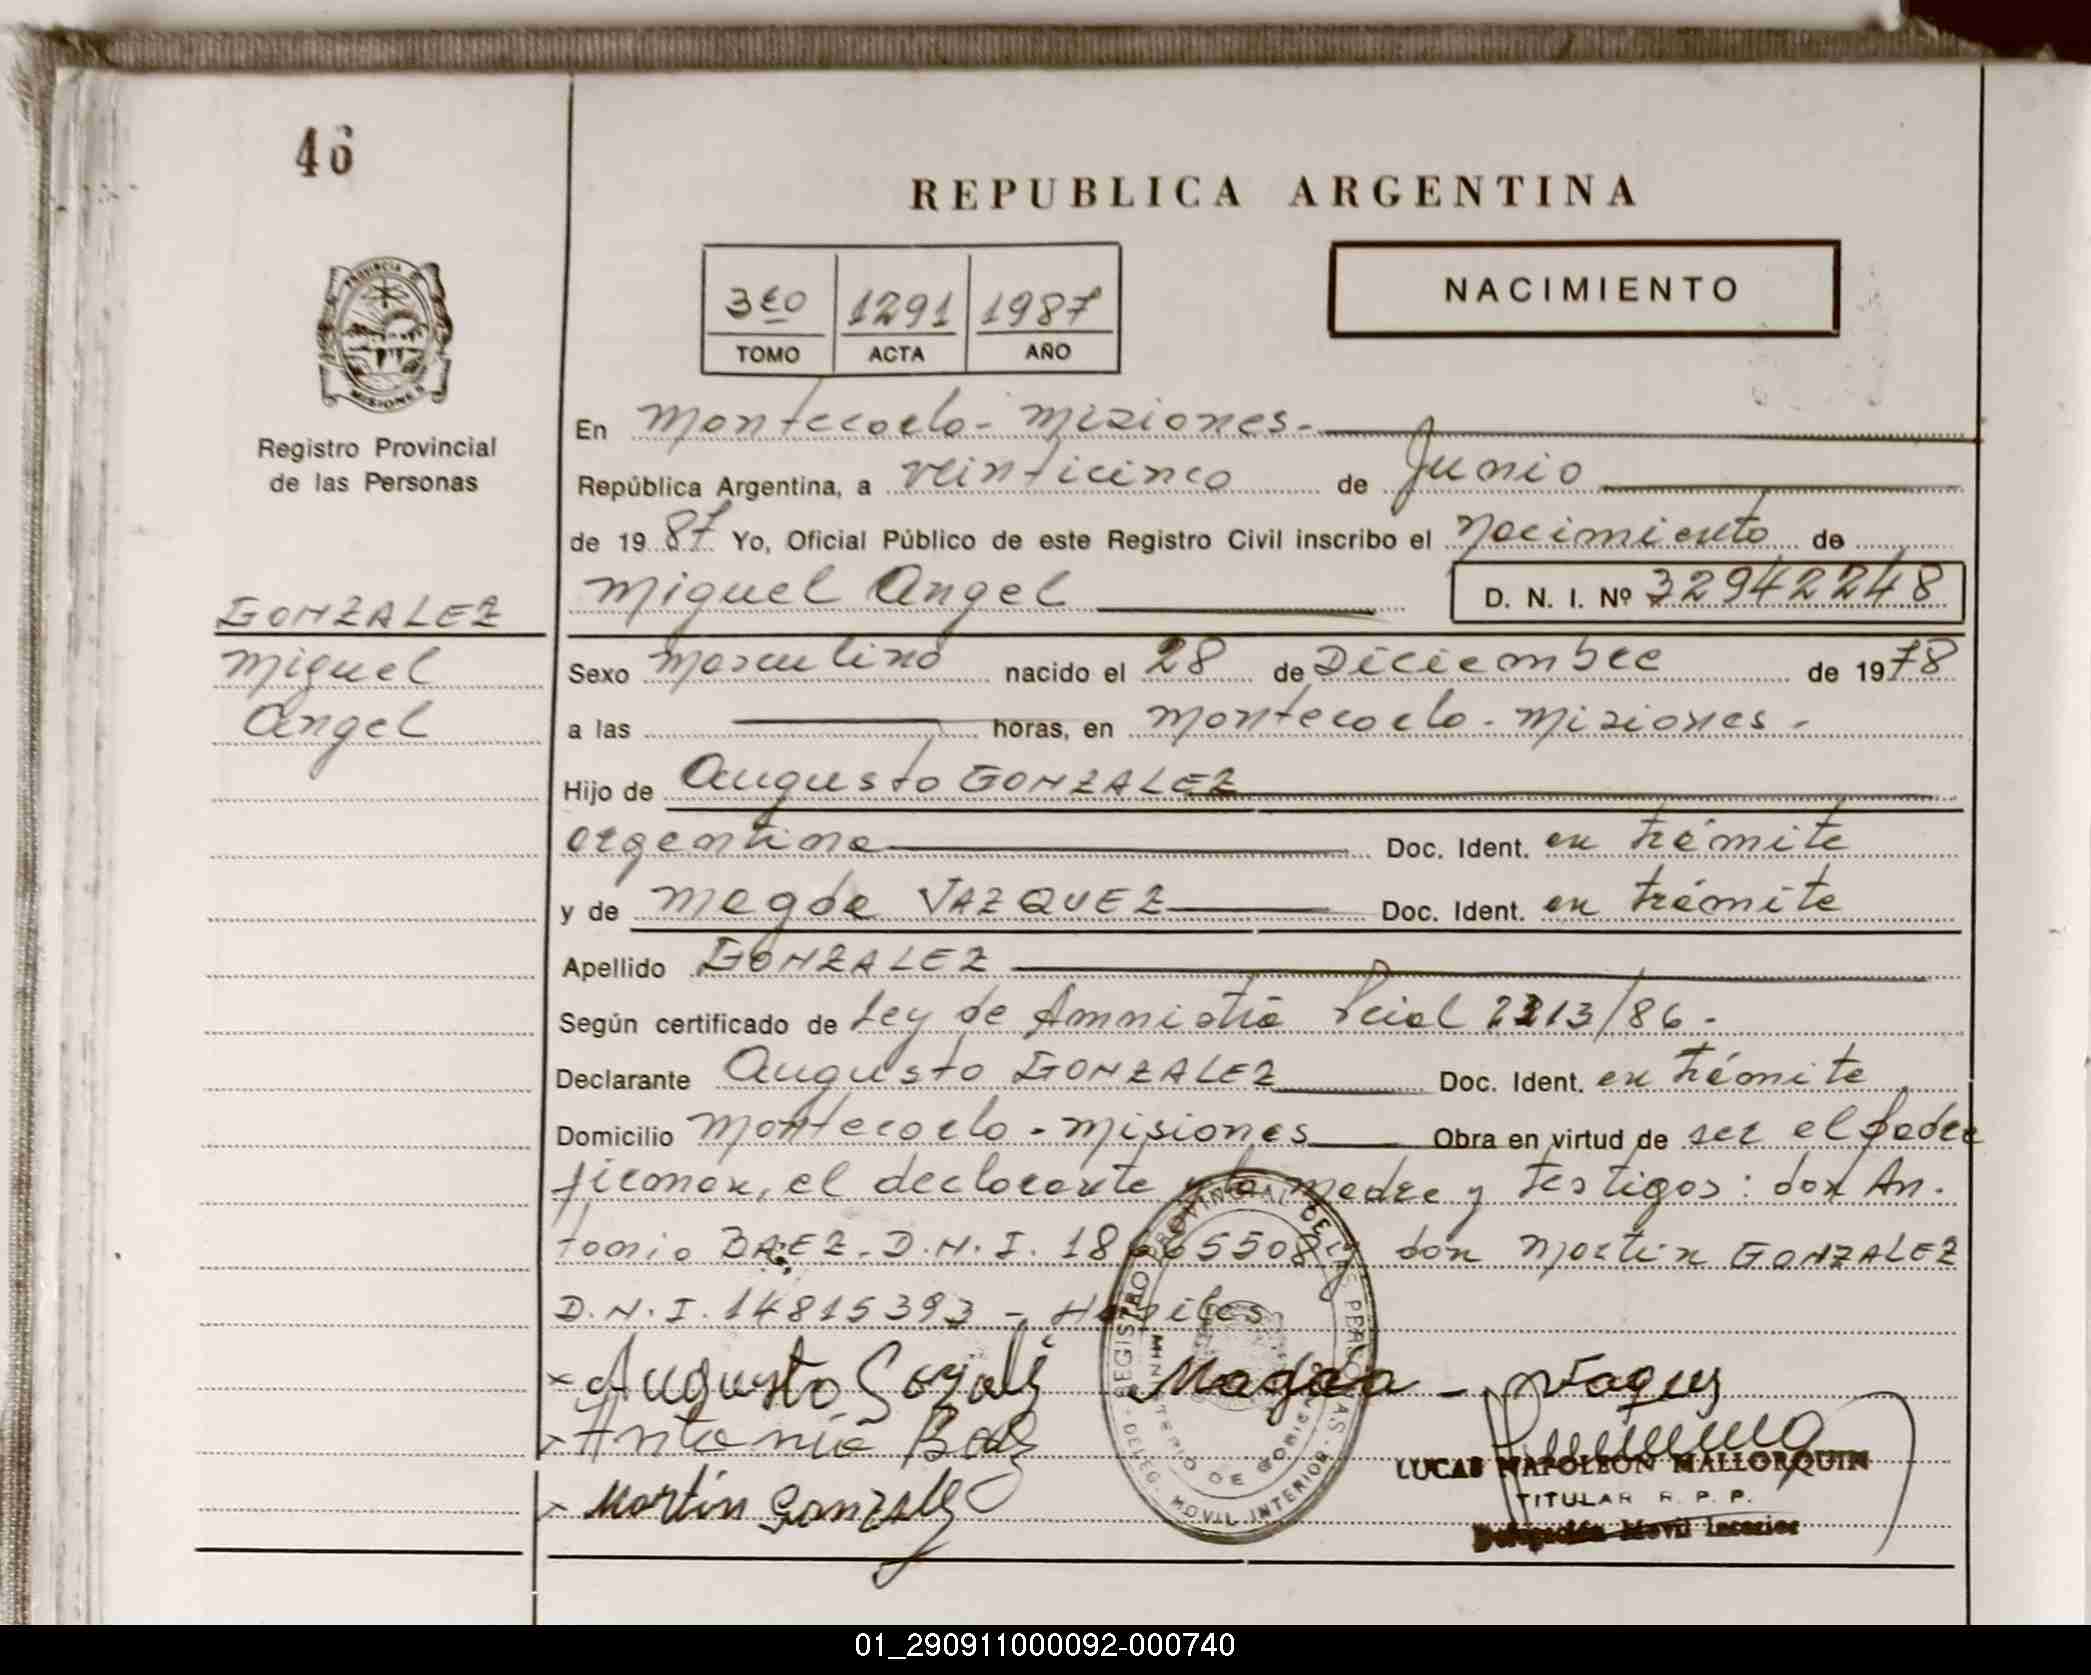 46
REPUBLICA ARGENTINA
NACIMIENTO
3ro 1291 1987
TOMO ACTA AÑO
PROVINCIA DE MISIONES
Registro Provincial
de las Personas
GONZALEZ
Miguel
Angel
En Montecarlo - Misiones.-
República Argentina, a veinticinco de Junio
de 1987 Yo, Oficial Público de este Registro Civil inscribo el Nacimiento de
Miguel Angel D. N. I. Nº 32942248
Sexo Masculino nacido el 28 de Diciembre de 1978
a las horas, en Montecarlo - Misiones -
Hijo de Augusto GONZALEZ
argentina Doc. Ident. en trámite
y de Magda VAZQUEZ Doc. Ident. en trámite
Apellido GONZALEZ
Según certificado de Ley de Amnistía 2213/86 -
Declarante Augusto GONZALEZ Doc. Ident. en trámite
Domicilio Montecarlo - Misiones Obra en virtud de ser el padre
firman, el declarante y la madre y testigos: don An-
tonio BAEZ - D.N.I. 18665508 y don Martin GONZALEZ
D.N.I. 14815393 - Habiles
Augusto Gozalé Magda - Vaques
Antonio Baez
Martín Gonzalez
REGISTRO PROVINCIAL DE LAS PERSONAS - DELEG. MOVIL INTERIOR -
MINISTERIO DE GOBIERNO
LUCAS NAPOLEON MALLORQUIN
TITULAR R. P. P.
Delegación Movil Interior
01_290911000092-000740